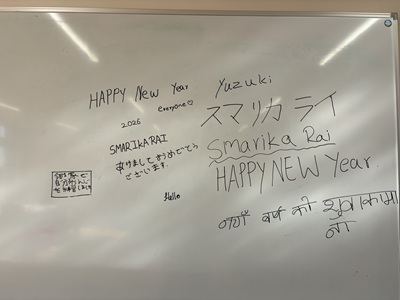 HAPPY New Year
everyone♡
2026
SMARIKA RAI
ありましておうめでとう
ございます
Hello
Yuzuki
スマリカ ライ
Smarika Rai
HAPPY NEW Year.
नयाँ वर्ष को शुभकामा
ना